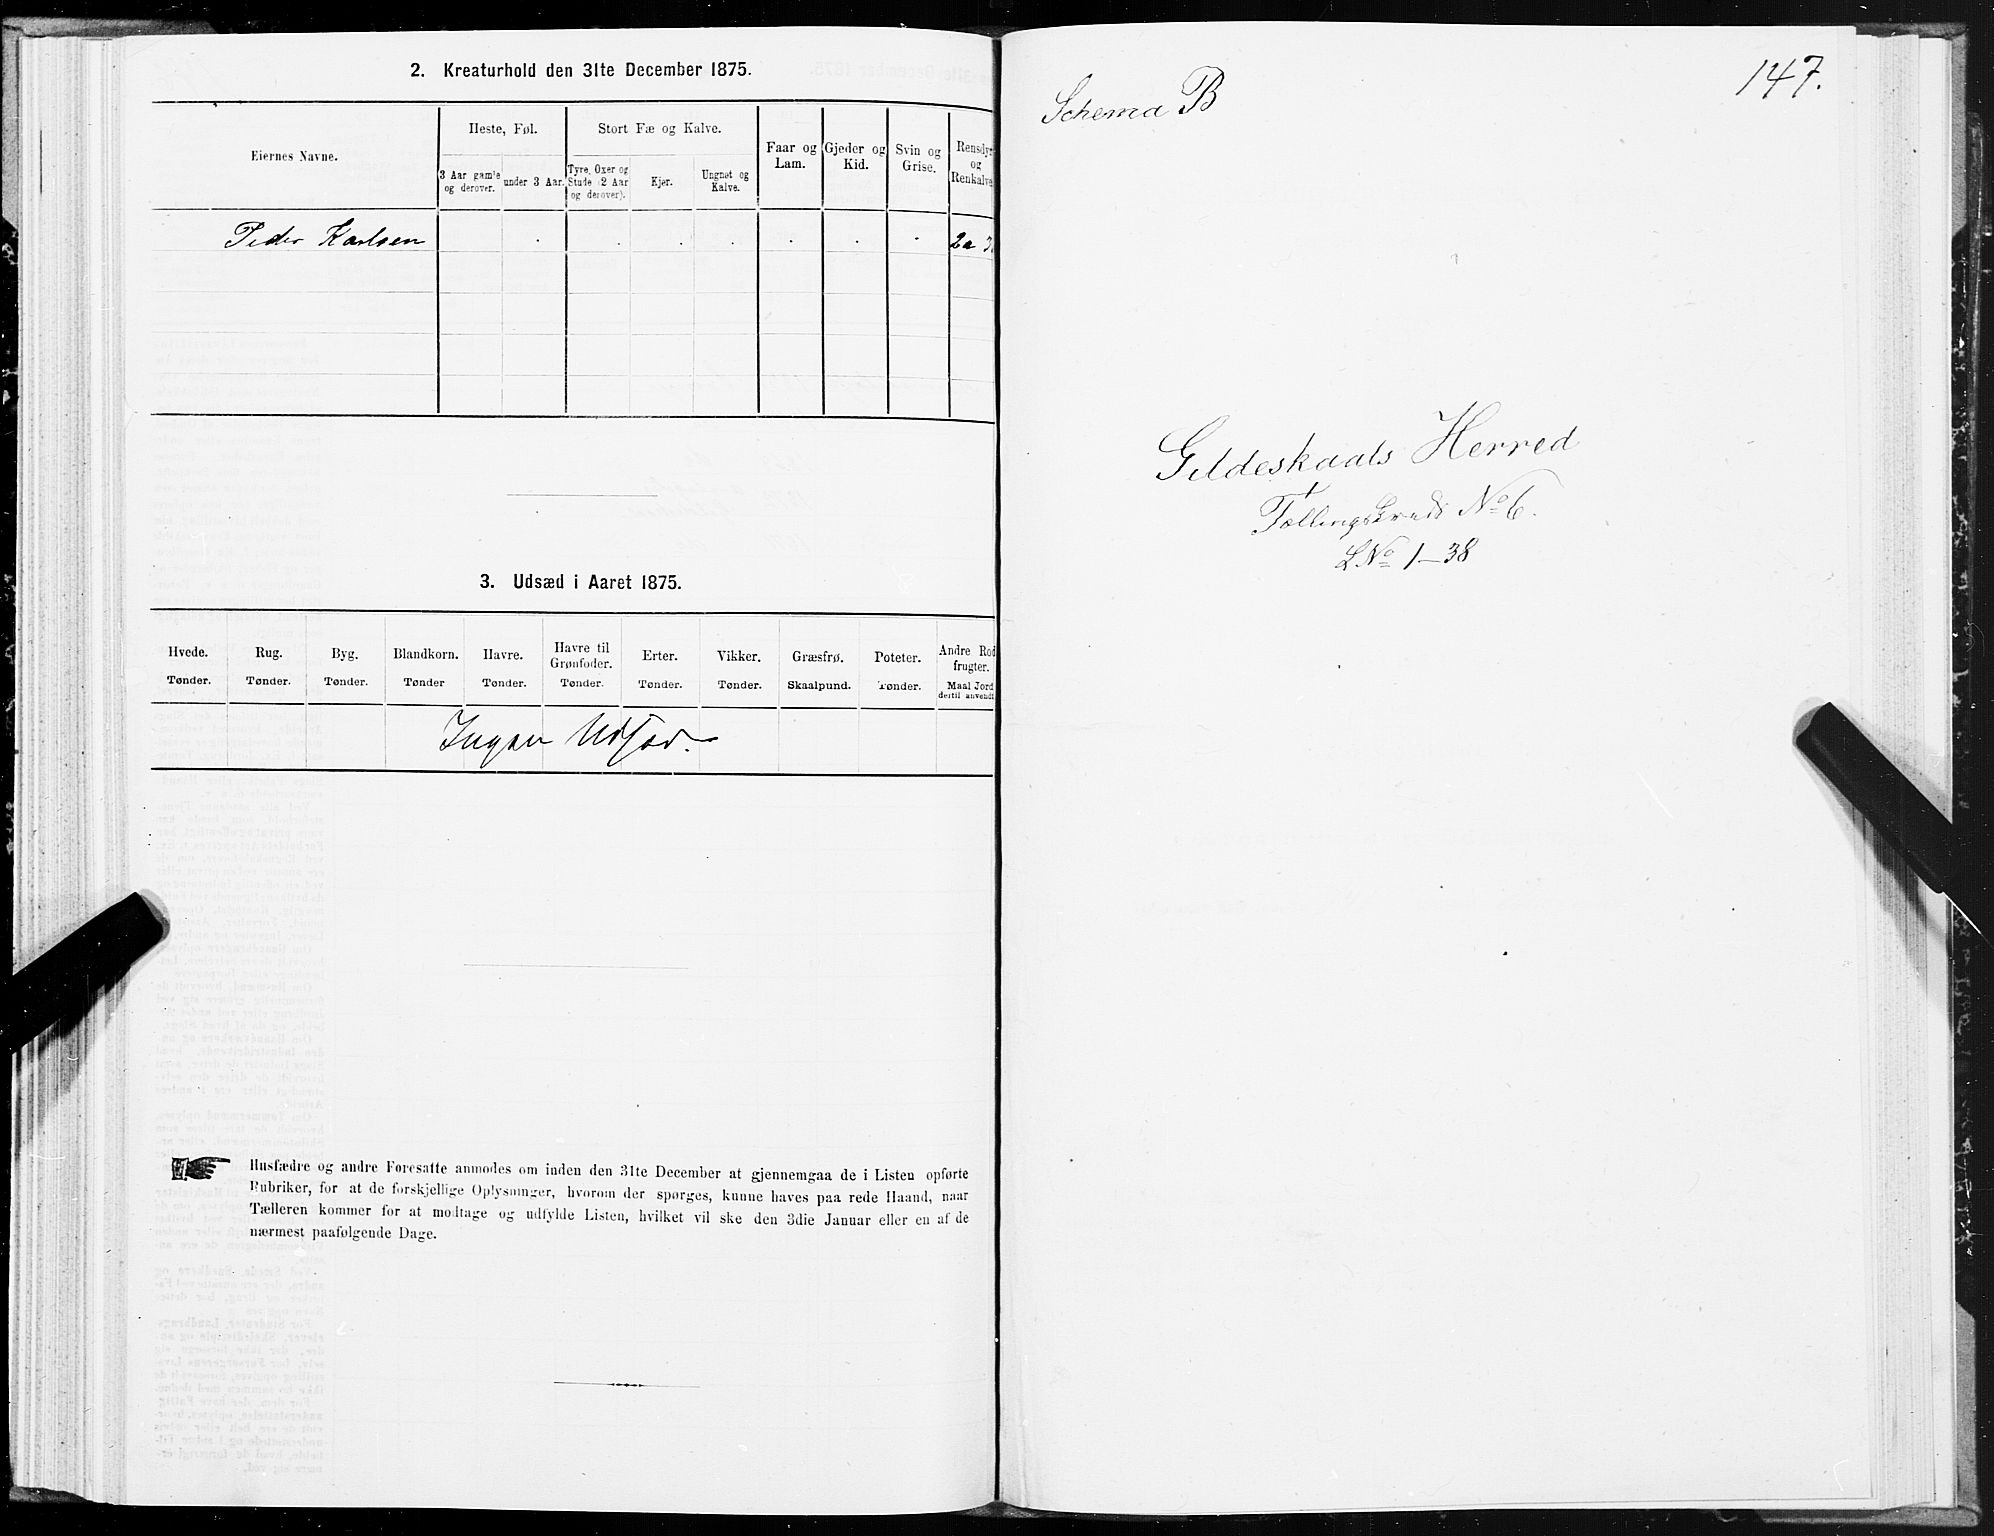 2. Kreaturhold den 31te December 1875.
Eiernes Navne.
Heste, Føl.
Stort Fæ og Kalve.
Faar og Lam.
Gjeder og Kid.
Svin og Grise.
Rensdyr og Renkalve
3 Aar gamle og derover.
under 3 Aar.
Tyre, Oxer og Stude (2 Aar og derover).
Kjør.
Ungnøt og Kalve.
Peder Karlsen . . . . . . .
3. Udsæd i Aaret 1875.
Hvede. Rug. Byg. Blandkorn. Havre. Havre til Grønfoder. Erter. Vikker. Græsfrø. Poteter. Andre Rod frugter.
Tønder. Tønder. Tønder. Tønder Tønder. Tønder. Tønder. Tønder. Skaalpund. Tønder. Maal Jord dertil anvendt
Ingen Udsæd.
Husfædre og andre Foresatte anmodes om inden den 31te December at gjennemgaa de i Listen opførte
Rubriker, for at de forskjellige Oplysninger, hvorom der spørges, kunne haves paa rede Haand, naar
Tælleren kommer for at modtage og udfylde Listen, hvilket vil ske den 3die Januar eller en af de
nærmest paafølgende Dage.
147.
Schema B
Gildeskaals Herred
Tællingskreds No 6.
LNo 1-38